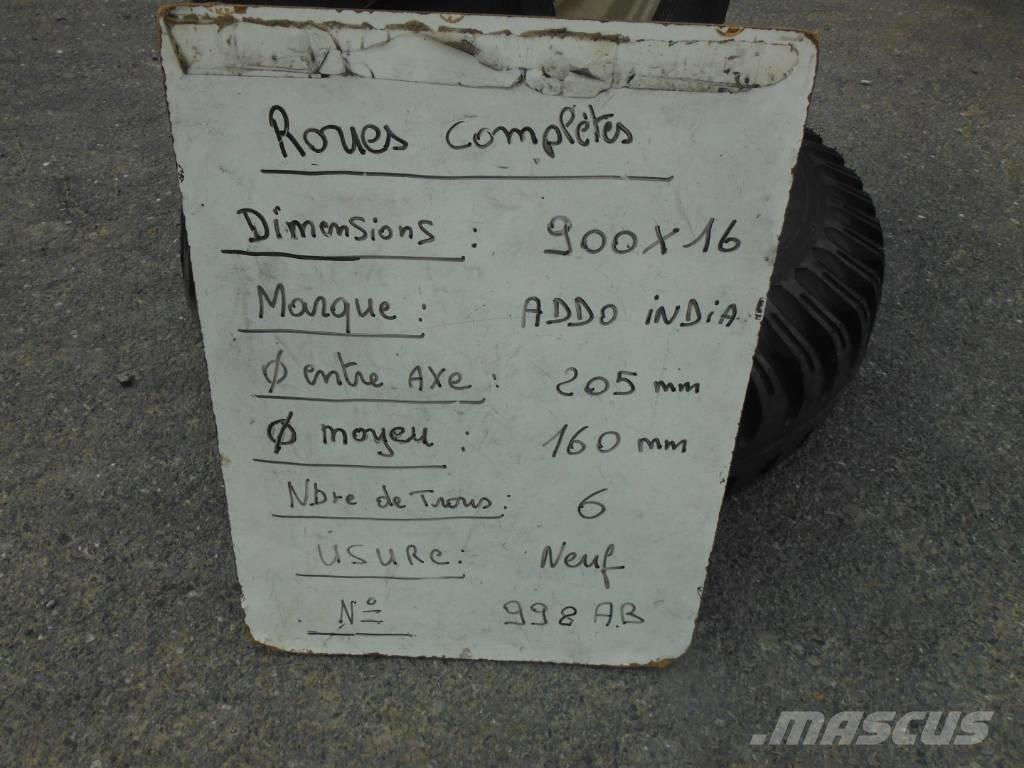 Roues complètes
Dimensions : 900X16
Marque : ADDO iNDiA
Ø entre AXe : 205 mm
Ø moyeu : 160 mm
Nbre de Trous : 6
USURe : Neuf
N° 998 A.B
.MASCUS